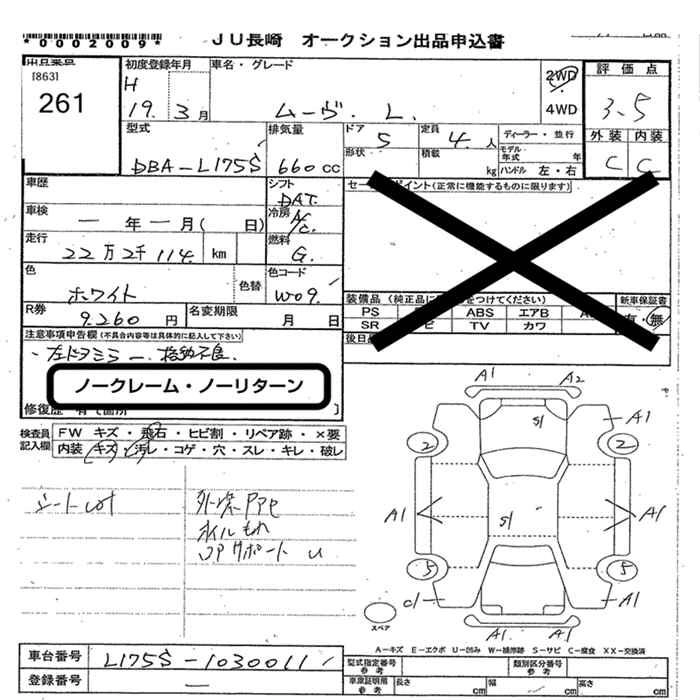 *0002009*
JU長崎 オークション出品申込書
出品業店
[863]
261
初度登録年月
H 19. 3 月
車名・グレード
ムーヴ. L.
2WD
4WD
評価点
3.5
外装 内装
C C
型式
DBA-L175S
排気量
660 cc
ドア 5
形状
定員 4 人
積載 kg
ディーラー・並行
モデル年式 年
ハンドル 左・右
車歴
シフト
DAT.
セールスポイント(正常に機能するものに限ります)
車検
一 年 一 月( 日)
冷房
A/C.
走行
22万2千114. km
燃料
G.
色
ホワイト
色替
色コード
W09.
装備品 (純正品に をつけてください)
新車保証書
PS ABS エアB
SR TV カワ
有・無
R券
9,260 円
名変期限
月 日
後日品
注意事項申告欄(不具合内容等は具体的に記入して下さい)
・左ドアミラー. 格納不良.
ノークレーム・ノーリターン
修復歴 有(箇所 )
検査員記入欄
FW キズ・飛石・ヒビ割・リペア跡・×要
内装 キズ・汚レ・コゲ・穴・スレ・キレ・破レ
オイルもれ
A1 A2
S1 A1
2 2
A1 S1 A1
5 5
A1
A1 A1
スペア
A-キズ E-エクボ U-凹み W-補修跡 S-サビ C-腐食 XX-交換済
車台番号
L175S-1030011
登録番号
型式指定番号 参考
類別区分番号 参考
車庫証明用 参考
長さ cm 幅 cm 高さ cm